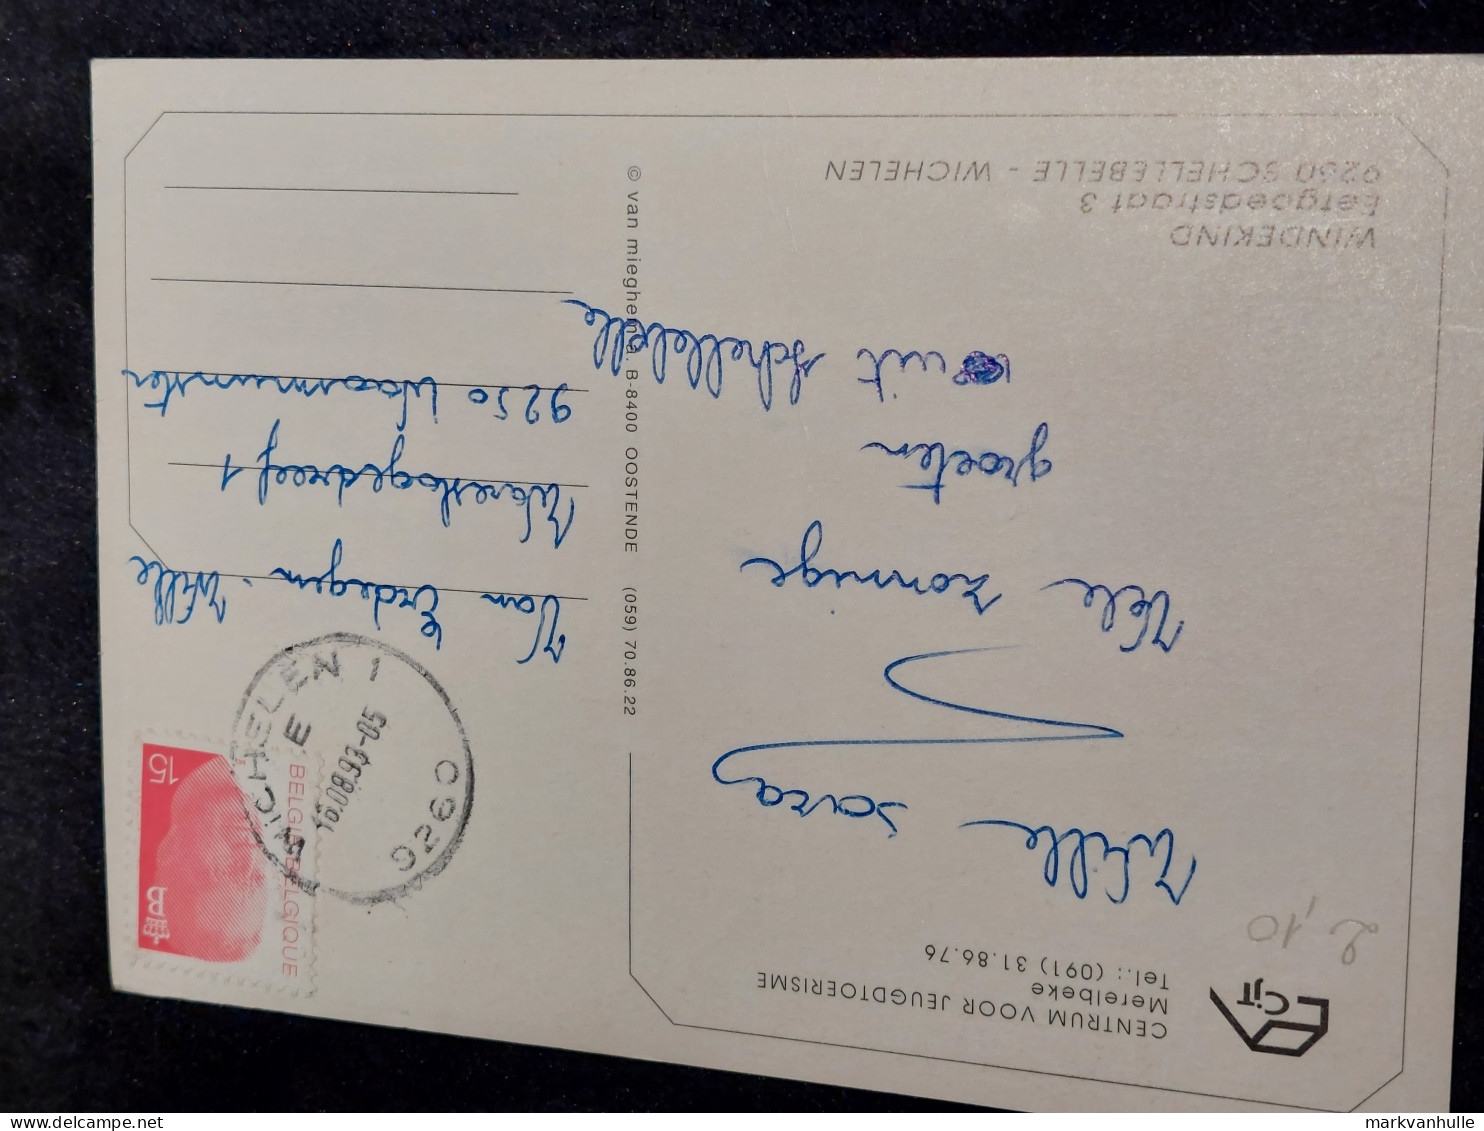 CJT
CENTRUM VOOR JEUGDTOERISME
Merelbeke
Tel.: (091) 31.86.76
2,10
Wille
Vele zonnige
groeten
uit Schellebelle
WINDEKIND
Eergoedstraat 3
9260 SCHELLEBELLE - WICHELEN
© van mieghem
B-8400 OOSTENDE (059) 70.86.22
BELGIE-BELGIQUE
15
B
WICHELEN 1
E
16.08.93-05
9260
Van Erdegem - Wille
1
9250 Waasmunster
markvanhulle